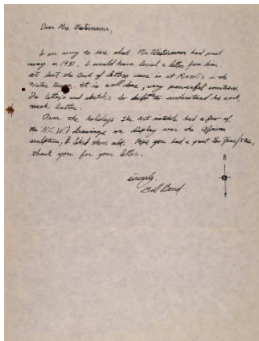 Dear Mrs. Westermann,
I am sorry to hear that Mr. Westermann had past
away in 1981. I would have loved a letter from him.
at last the book of letters came in at
It is well done, very powerful
The letters and sketches help to understand his work
much better.
Over the holidays the art institute had a few of
the H.C.W. drawings on display near the African
sculpture, I liked them alot. Hope you had a great
thank you for your letter.
N
sincerely,
Bill Bond